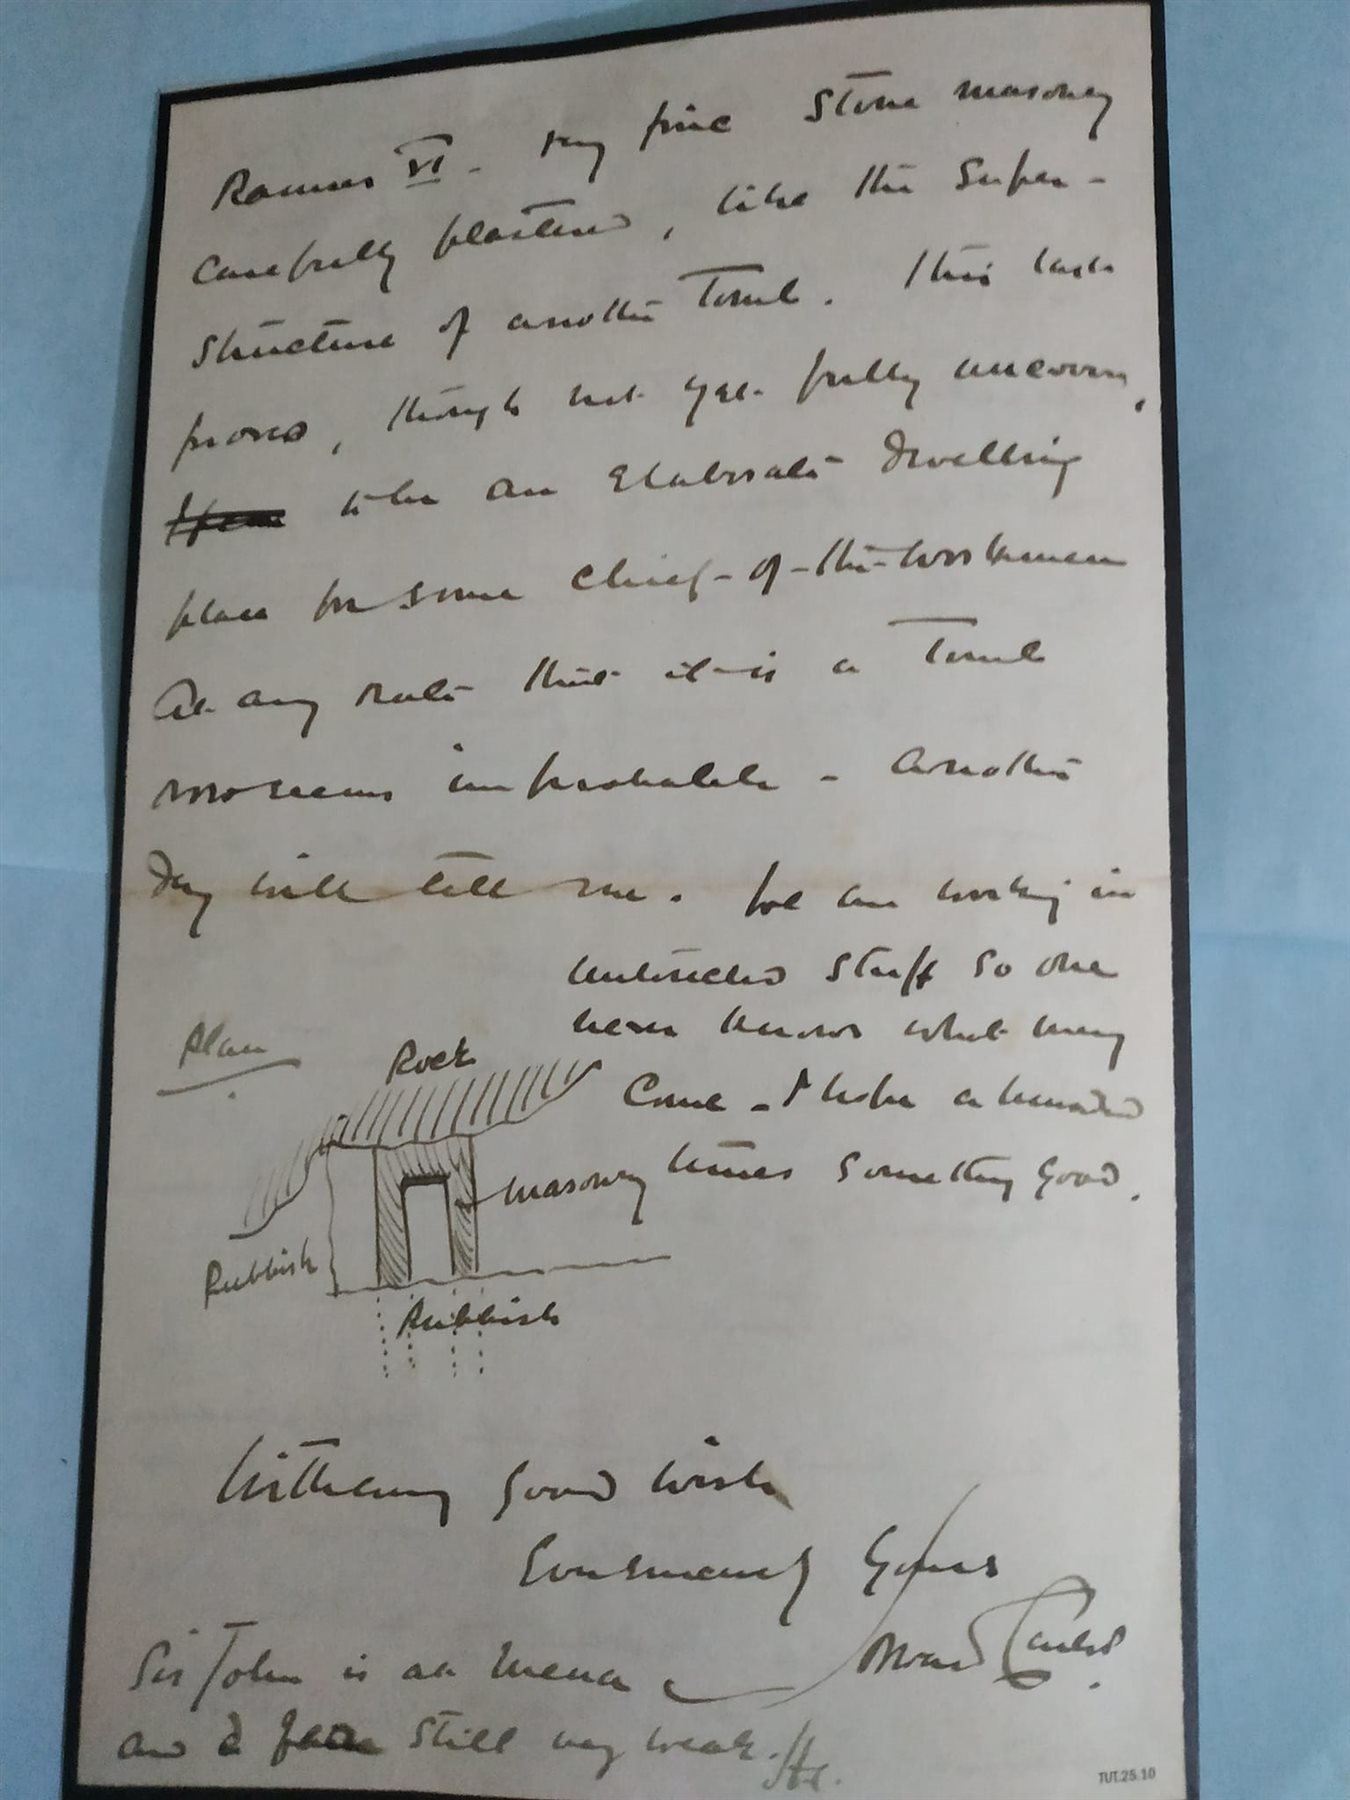 Ramses VI - very fine stone masonry
carefully plastered, like the super-
structure of another Tomb. This last
proves, though not yet fully uncovered,
to be an elaborate dwelling
place for some chief-of-the-workmen
At any rate that it is a Tomb
now seems improbable - another
day will tell me. We are working in
untouched stuff so one
never knows what may
come - I hope a hundred
times something good.
Plan
Rock
masonry
Rubbish
Rubbish
With many good wishes
Yours
Howard Carter.
Sir John is at Mena
and I still very weak. H.C.
TUT.25.10